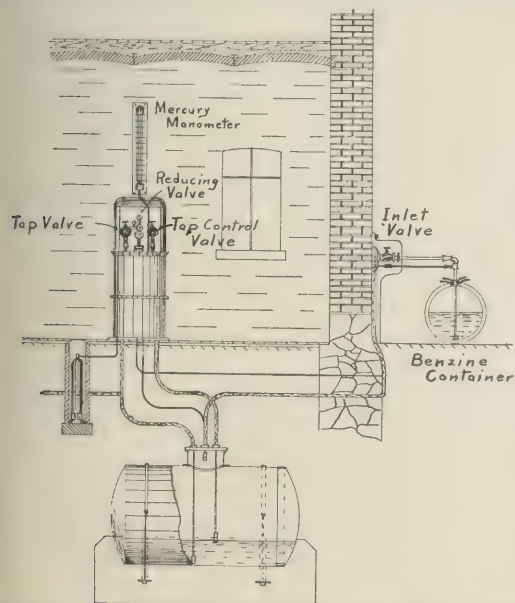 Mercury
Manometer
Reducing
Valve
Tap Valve
Tap Control
Valve
Inlet
Valve
Benzine
Container